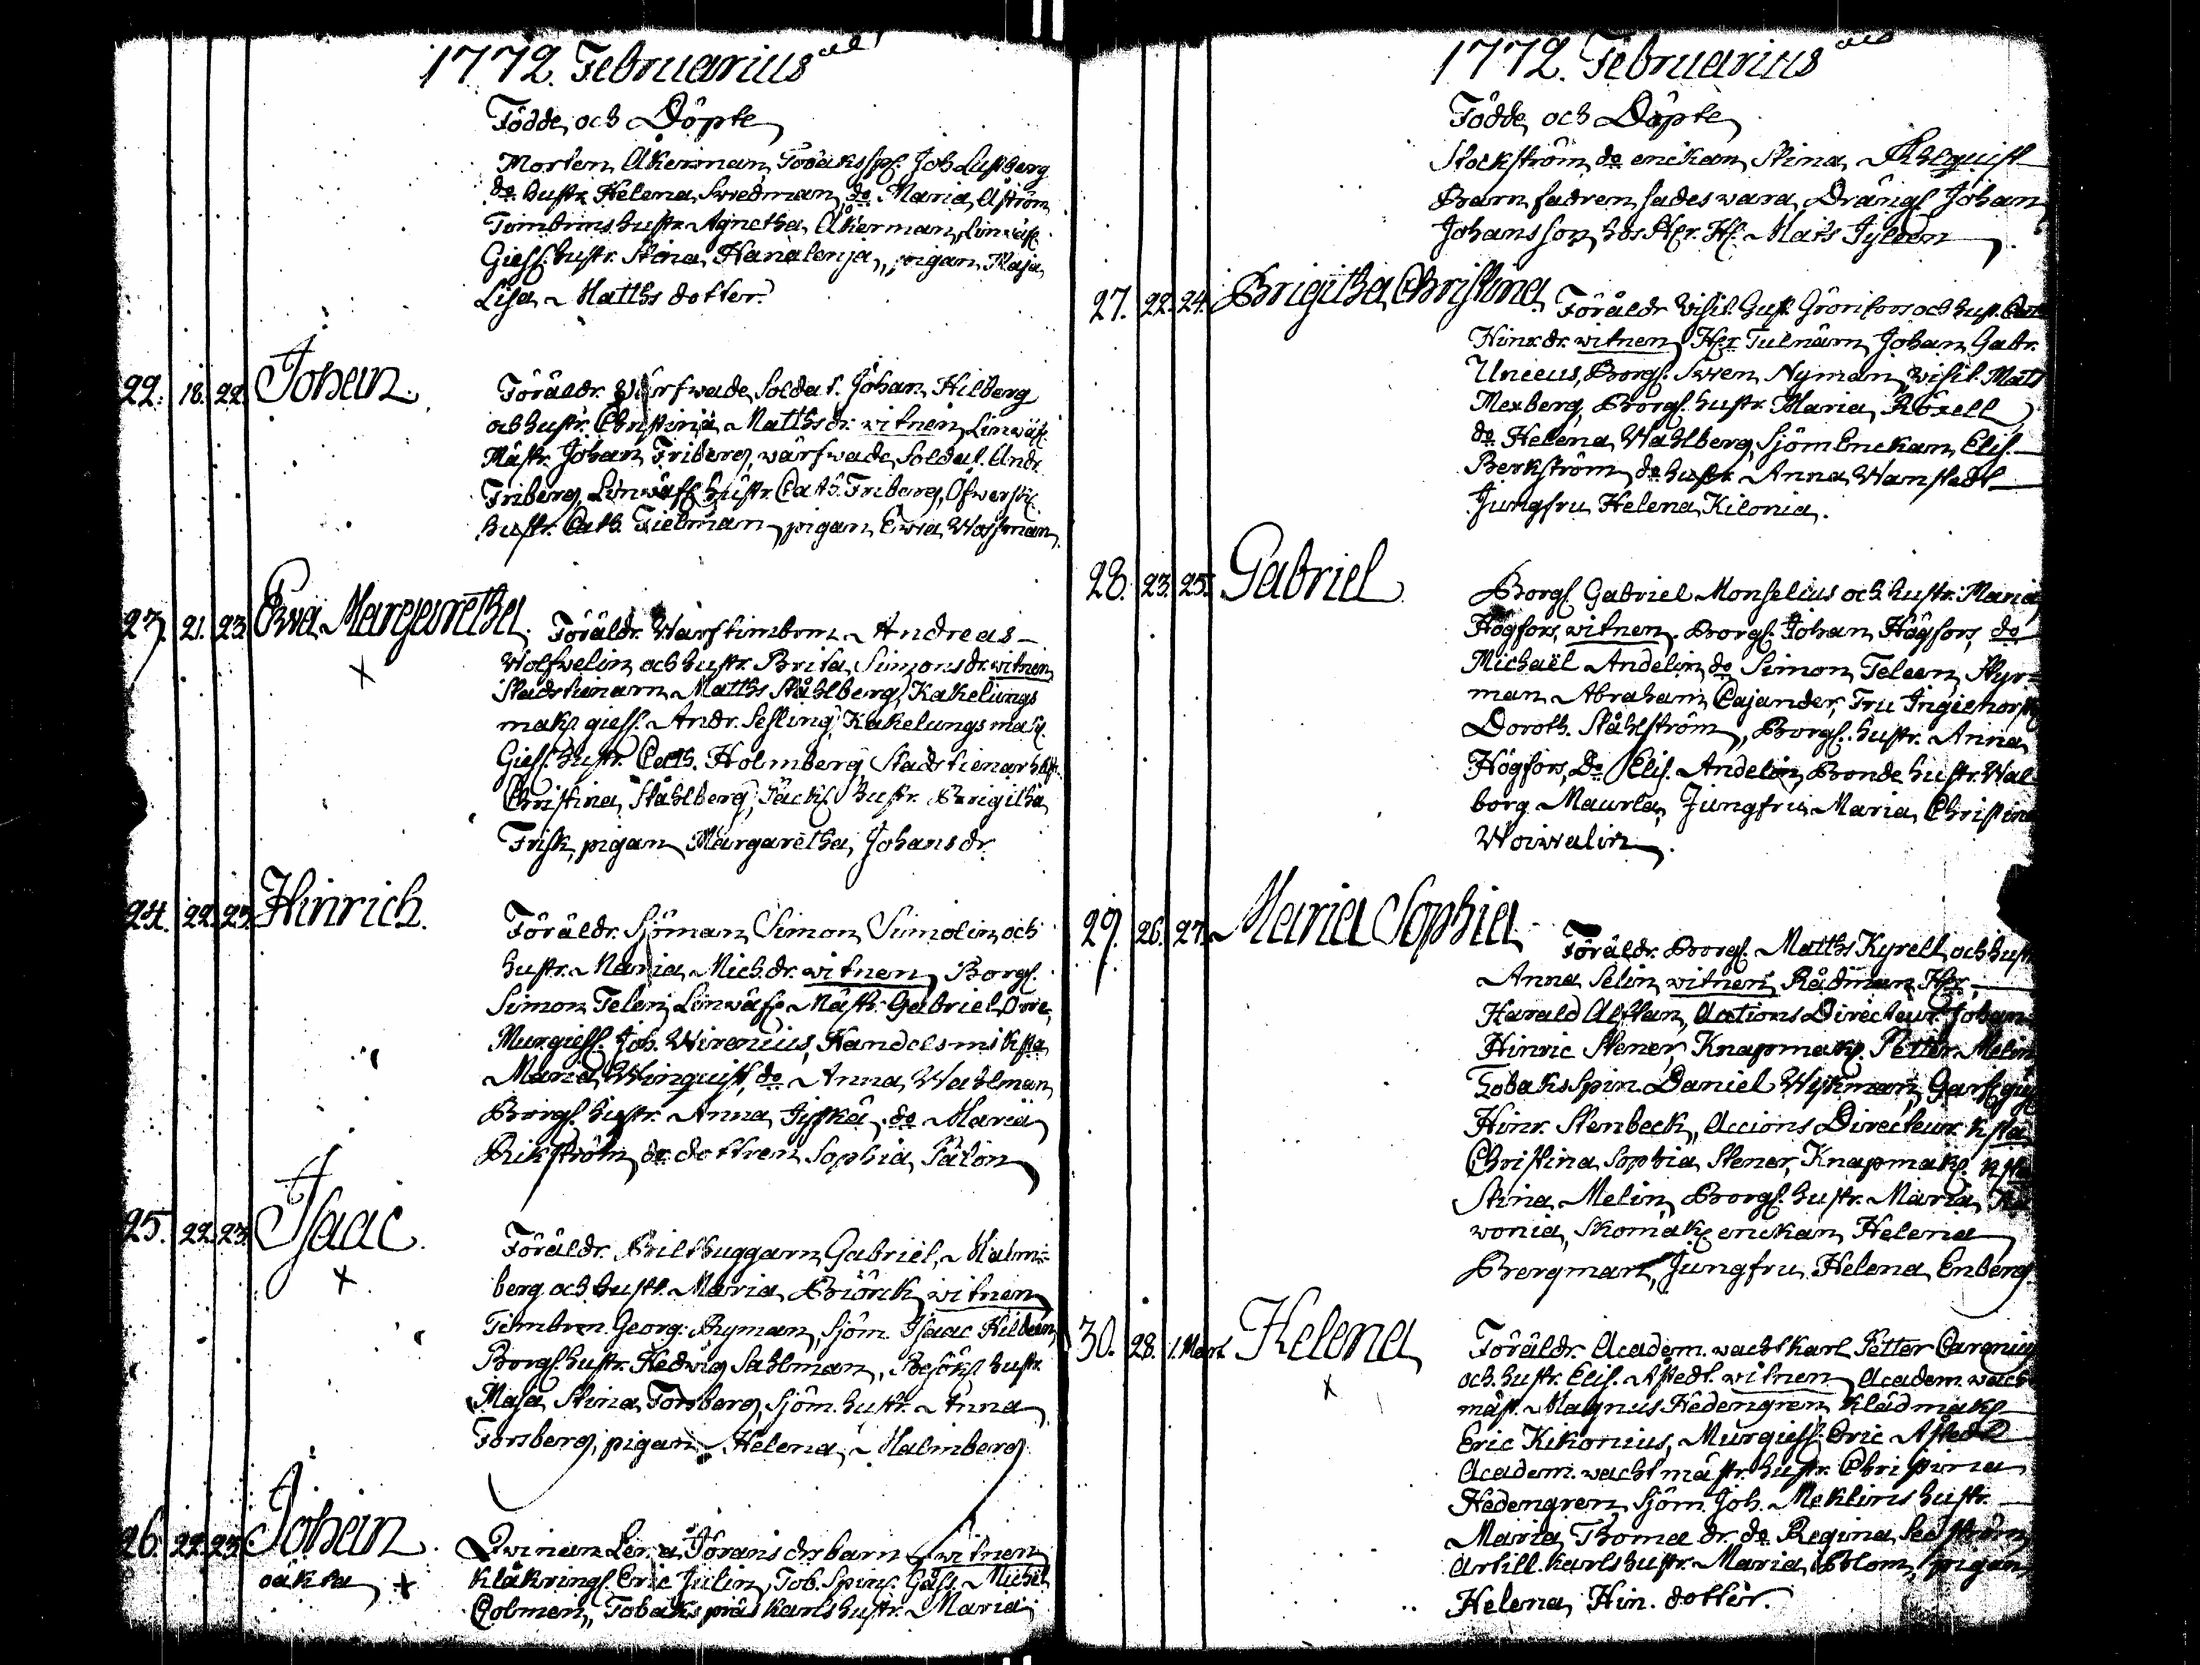 1772. Februarius
Födde och Döpte
Morten Åkerman, Tobakssp. Joh. Lustberg
do hustr. Helena Swedman, do Maria Åström
Timbrms hustr. Agnetha Åkerman, Linwäf.
Gies. hustr. Stina Hanalenja, pigan Maja
Lisa Matths dotter.
22. 18. 22. Johan. Föräldr. Wärfwade Soldat. Johan Hilberg
och hustr. Christina Matthsdr. witnen Linwäf.
Mästr. Johan Friberg, wärfwade Soldat. Andr.
Friberg, Linwäf. hustr. Cath. Friberg, Öfwerskr.
hustr. Cath. Tielman, pigan Ewa Wassman.
23. 21. 23. Ewa Margaretha. Föräldr. Warftimbrm. Andreas
Wolfwelin och hustr. Brita Simonsdr. witnen
Stadstienarn Matths Ståhlberg, Kakelungs
mak. gies. Andr. Sesling, Kakelungsmak.
Gies. hustr. Cath. Holmberg Stadstienar hustr.
Christina Ståhlberg, Säck. hustr. Brigitha
Frisk, pigan Margaretha Johansdr.
24. 22. 23. Hinrich. Föräldr. Sjöman Simon Simolin och
hustr. Maria Mich.dr. witnen Borg.
Simon Telen, Linwäf. Mästr. Gabriel
Murgies. Joh. Wirenius, Handelsms
Maria Winquist, do Anna Wahlman
Borg. hustr. Anna Jyskä, do Maria
Rikström, do dottren Sophia Pälön
25. 22. 23. Isaac. Föräldr. Bilthuggarn Gabriel Malm-
berg och hustr. Maria Biörck, witnen
Timbrm. Georg. Ryman, Sjöm. Isaac Hilbom
Borg. hustr. Hedwig Sahlman, Besök. hustr.
Maja Stina Forsberg, Sjöm. hustr. Anna
Forsberg, pigan Helena Malmberg.
26. 22. 23. Johan. Qwinan Lena Jörans dr barn witnen
oäkta Kläkring. Eric Julin, Tob. Spin. Gäs. Michel
Colmen, Tobakspräs karls hustr. Maria
1772. Februarius
Födde och Döpte
Stockström, do enckan Stina Ahlquist
Barnfadren sades wara Dräng. Johan
Johansson hos Hr. Mats Jyleen
27. 22. 24. Brigitha Christina. Föräldr. Visit. Gust. Grönfors och hust. Cath.
Hinr.dr. witnen, Hr. Tulnärn Johan Gabr.
Unceus, Borg. Swen Nyman, Visit. Mats
Mexberg, Borg. hustr. Maria Röxell
do Helena Wahlberg, Sjöm Enckan Elis.
Berkström, do hustr. Anna Wanstedt
Jungfru Helena Kilonia.
28. 23. 25. Gabriel. Borg. Gabriel Monselius och hustr. Maria
Högfors, witnen. Borg. Johan Högfors, do
Michaël Andelin, do Simon Teleen, Styr-
man Abraham Cajander, Fru
Doroth. Ståhlström, Borg. hustr. Anna
Högfors, Do Elis. Andelin, Bonde hustr. Wal-
borg Maurla, Jungfru Maria Christina
Woiwalin.
29. 26. 27. Maria Sophia. Föräldr. Borg. Matths Kyrell och hustr.
Anna Selin, witnen, Rådman Hr.
Harald Alftan, Actions Directeur Johan
Hinric Stener, Knapmak. Petter Melin
Tobaksspin. Daniel Wikman, Garf. gies.
Hinr. Stenbeck, Accions Directeur k sta
Christina Sophia Stener, Knapmak.
Stina Melin, Borg. hustr. Maria
wonia, Skomak. enckan Helena
Bergman, Jungfru Helena Enberg.
30. 28. 1. Mart. Helena Föräldr. Academ. wachtkarl Petter Carenius
och hustr. Elis. Åstedt. witnen, Academ. wact-
mäst. Magnus Hedengren Klädmak.
Eric Kikonius, Murgies. Eric Åstedt
Academ. wachtmästr. hustr. Christina
Hedengren, Sjöm. Joh. Meklins hustr.
Maria Thoma dr, do Regina Seström
Artill. karls hustr. Maria Blom, pigan
Helena Hin. dotter.